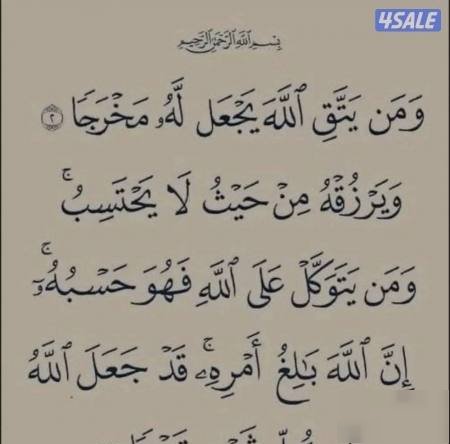 4SALE
بِسْمِ اللَّهِ الرَّحْمَٰنِ الرَّحِيمِ
وَمَن يَتَّقِ اللَّهَ يَجْعَل لَّهُۥ مَخْرَجًا ٢
وَيَرْزُقْهُ مِنْ حَيْثُ لَا يَحْتَسِبُ ۚ
وَمَن يَتَوَكَّلْ عَلَى اللَّهِ فَهُوَ حَسْبُهُۥٓ ۚ
إِنَّ اللَّهَ بَٰلِغُ أَمْرِهِۦ ۚ قَدْ جَعَلَ اللَّهُ